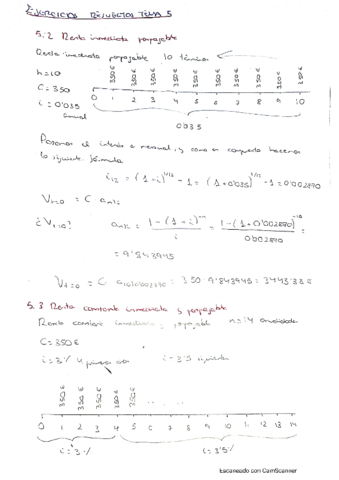 EJERCICIOS RESUELTOS TEMA 5
5.2 Renta inmediata pospagable
Renta inmediata pospagable 10 términos
n=10
C=350
i=0'035
anual
350€ 350€ 350€ 350€ 350€ 350€ 350€ 350€ 350€ 350€
0 1 2 3 4 5 6 7 8 9 10
0'035
Pasamos el interés a mensual, y como es compuesto hacemos
la siguiente fórmula
i12 = (1+i)^1/12 - 1 = (1+0'035)^1/12 - 1 = 0'002890
Vt=0 = C an¬i2
¿Vt=0? an¬i2 = 1-(1+i)^-n / i = 1-(1+0'002890)^-10 / 0'002890 =
= 9'843945
Vt=0 = C a10¬0'002890 = 350·9'843945 = 3445'38€
5.3 Renta constante inmediata y pospagable
Renta constante inmediata y pospagable n=14 anualidades
C=350€
i=3% 4 primeros años i=3'5 siguientes
350€ 350€ 350€ 350€ 350€ . . . .
0 1 2 3 4 5 6 7 8 9 10 11 12 13 14
i=3% i=3'5%
Escaneado con CamScanner